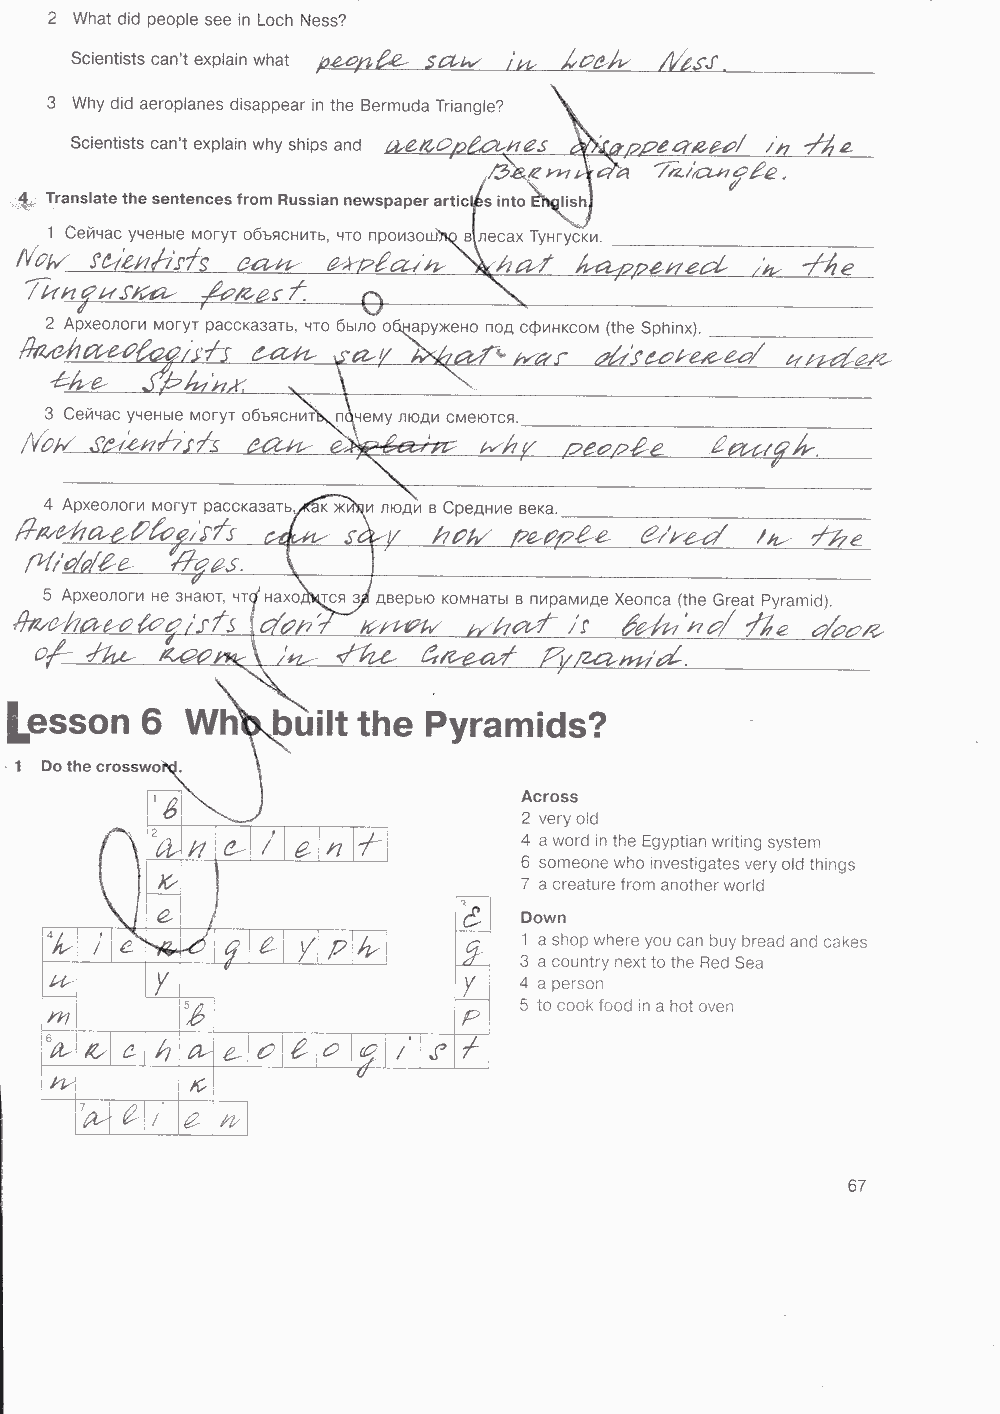 2 What did people see in Loch Ness?
Scientists can't explain what people saw in Loch Ness.
3 Why did aeroplanes disappear in the Bermuda Triangle?
Scientists can't explain why ships and aeroplanes disappeared in the
Bermuda Triangle.
4 Translate the sentences from Russian newspaper articles into English.
1 Сейчас ученые могут объяснить, что произошло в лесах Тунгуски.
Now scientists can explain what happened in the
Tunguska forest.
2 Археологи могут рассказать, что было обнаружено под сфинксом (the Sphinx).
Archaeologists can say what was discovered under
the Sphinx.
3 Сейчас ученые могут объяснить, почему люди смеются.
Now scientists can explain why people laugh.
4 Археологи могут рассказать, как жили люди в Средние века.
Archaeologists can say how people lived in the
Middle Ages.
5 Археологи не знают, что находится за дверью комнаты в пирамиде Хеопса (the Great Pyramid).
Archaeologists don't know what is behind the door
of the room in the Great Pyramid.
Lesson 6 Who built the Pyramids?
1 Do the crossword.
1 b
2 a n c i e n t
k
e 3 E
4 h i e r o g l y p h g
u y y
m 5 b p
6 a r c h a e o l o g i s t
n k
7 a l i e n
Across
2 very old
4 a word in the Egyptian writing system
6 someone who investigates very old things
7 a creature from another world
Down
1 a shop where you can buy bread and cakes
3 a country next to the Red Sea
4 a person
5 to cook food in a hot oven
67